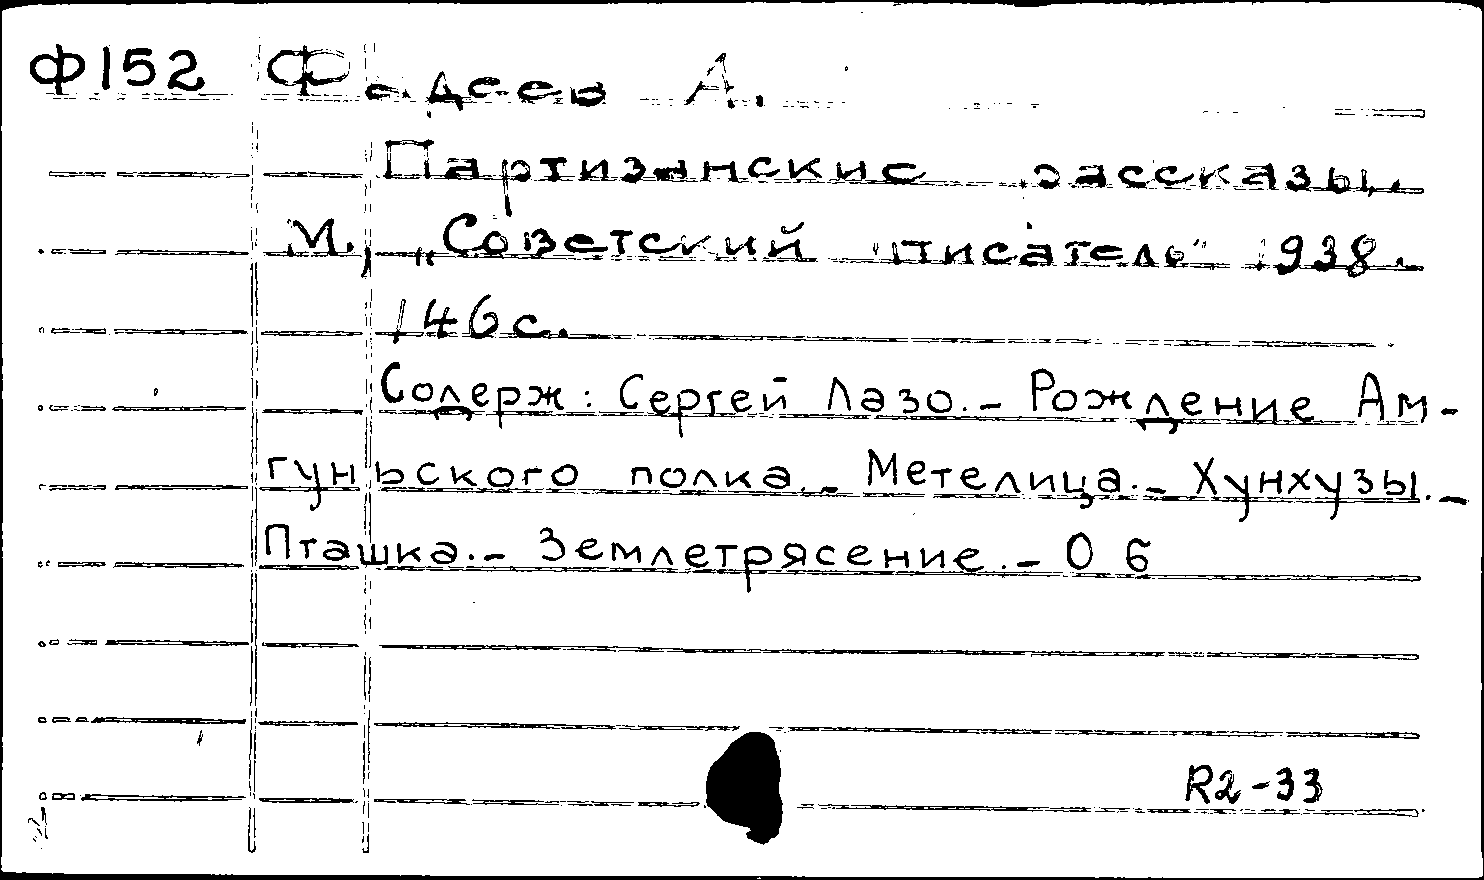 Ф152 Фадеев А.
Партизанские рассказы.
М., „Советский писатель" 1938.
146с.
Содерж: Сергей Лазо.- Рождение Ам-
гуньского полка.- Метелица.- Хунхузы.-
Пташка.- Землетрясение.- О б
R2-33